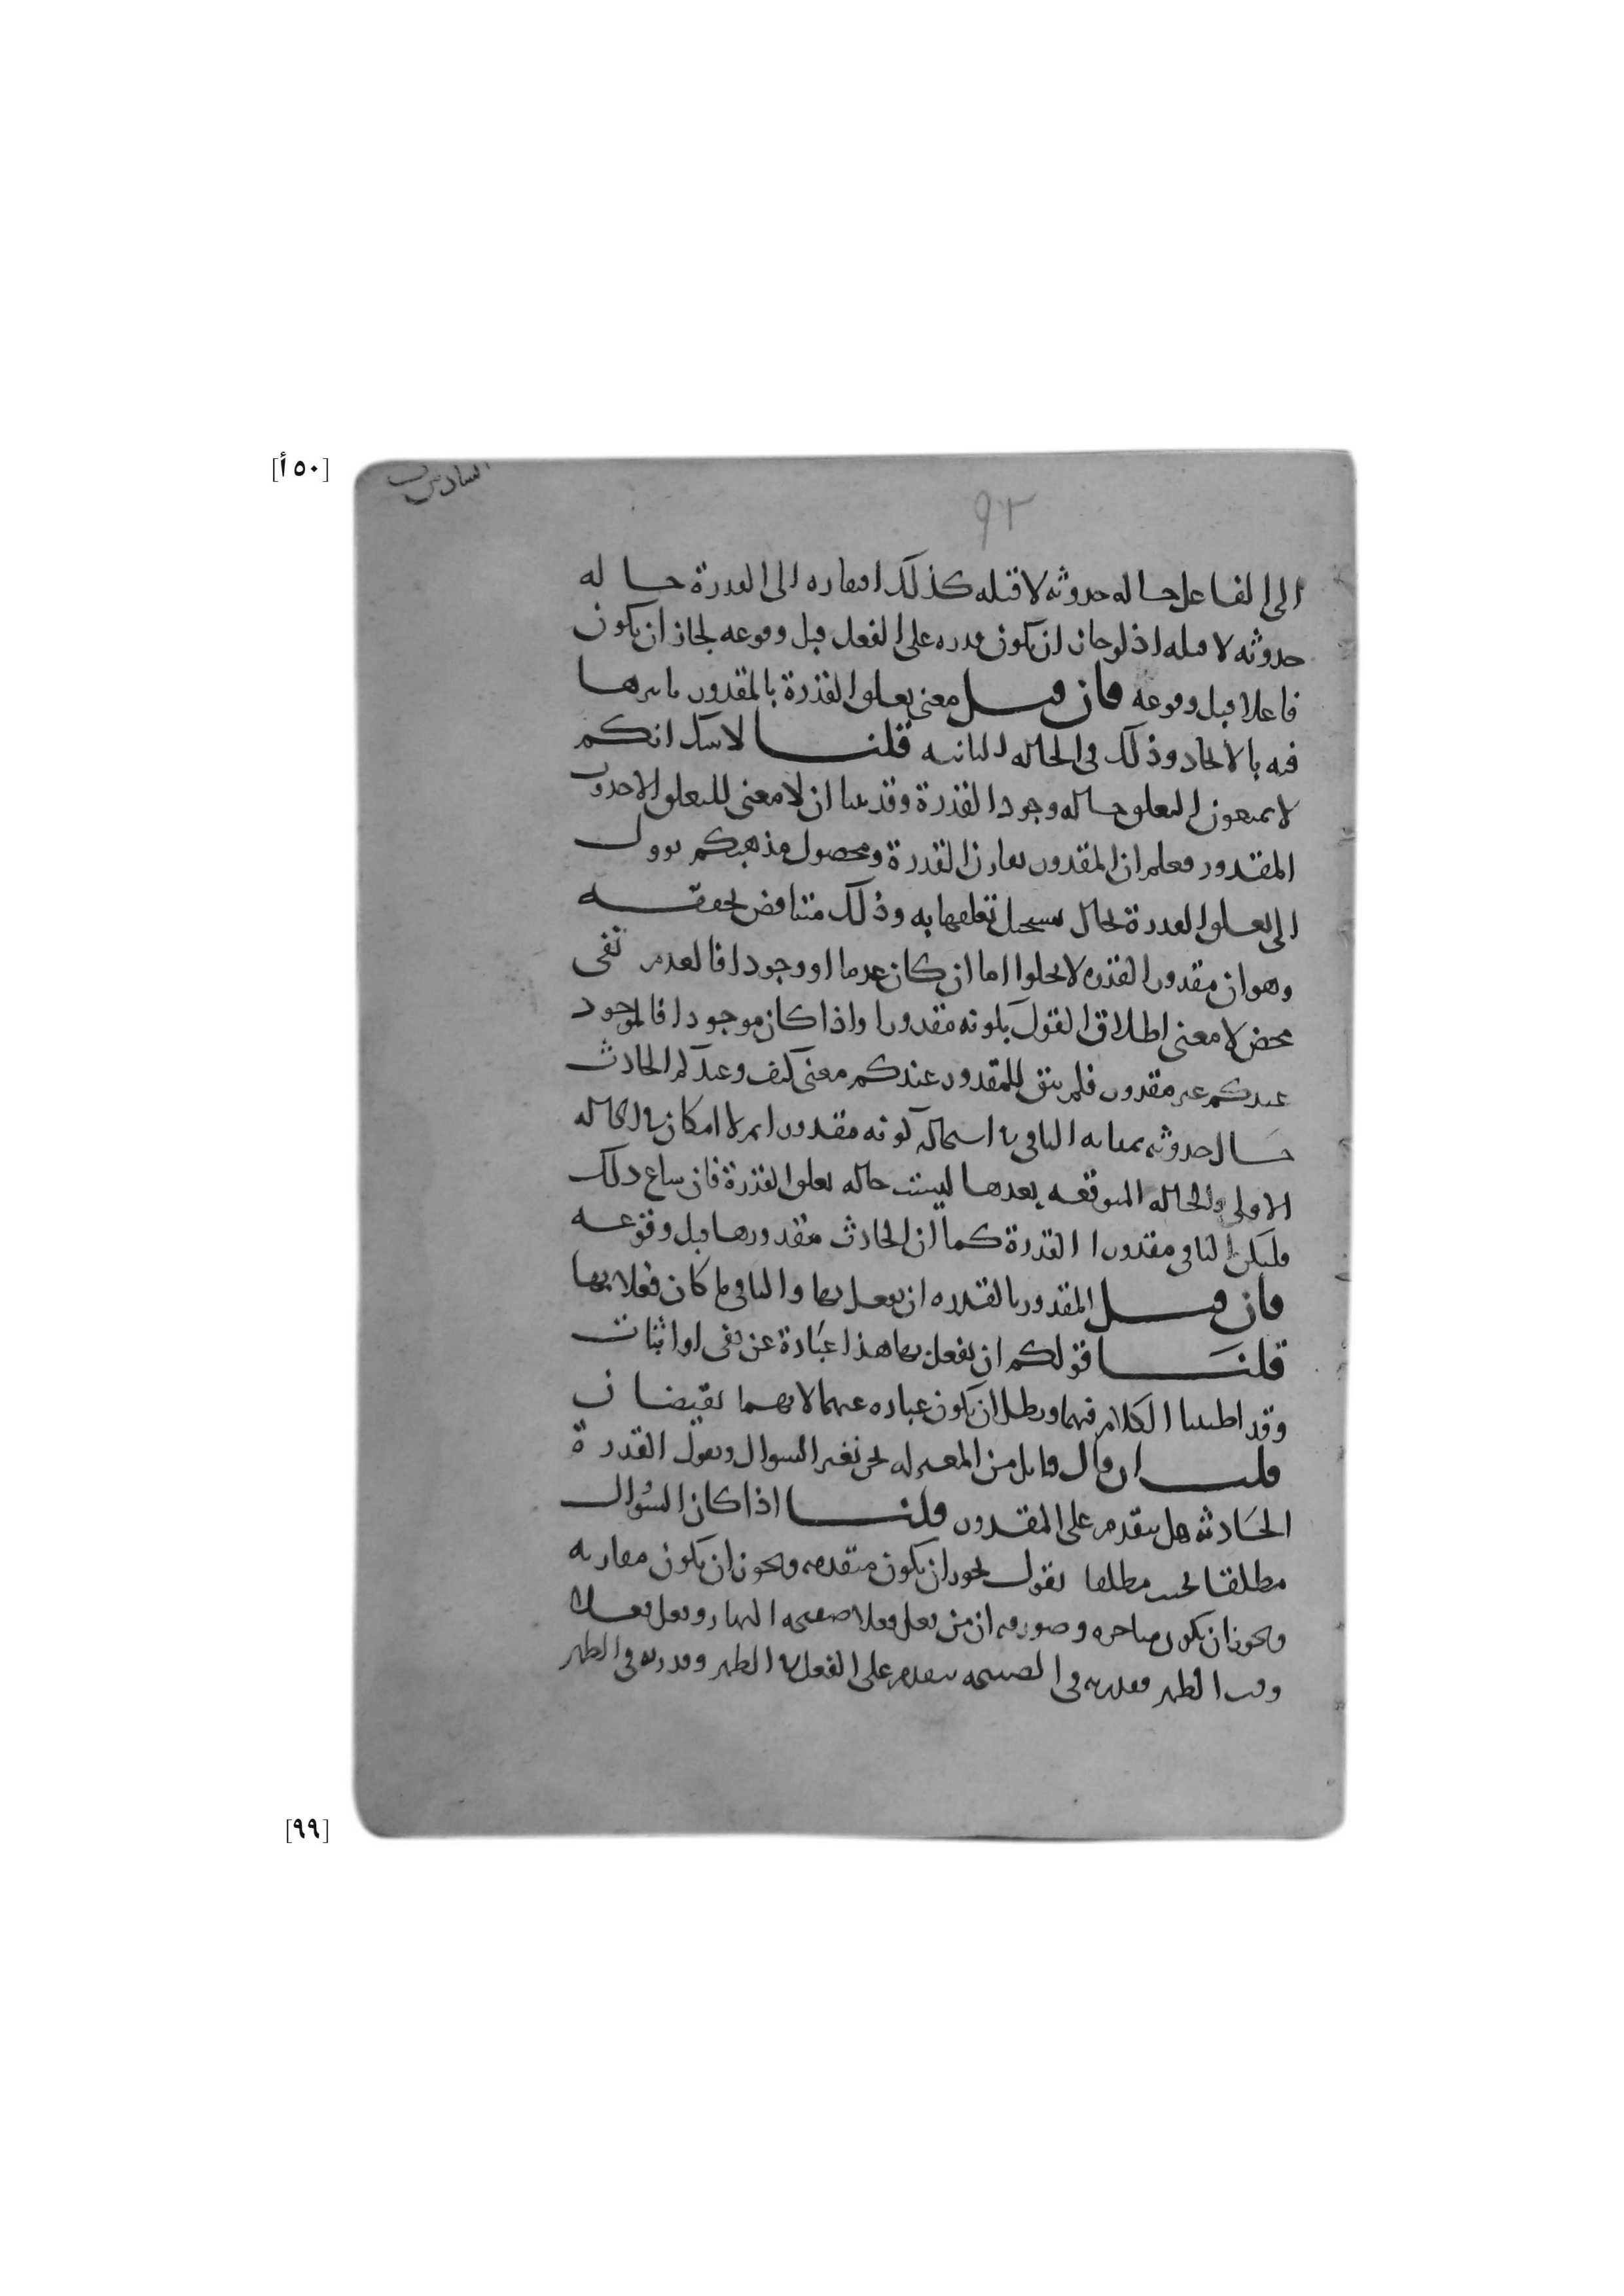 [٥٠ أ]
السادس
٩٢
الى الفاعل حاله حدوثه لا قبله كذلك افتقاره الى القدرة حاله
حدوثه لا قبله اذ لو جاز ان يكون قدره على الفعل قبل وقوعه لجاز ان يكون
فاعلا قبل وقوعه فان قيل معنى تعلق القدرة بالمقدور تاثيرها
فيه بالايجاد وذلك في الحاله الثانيه قلنا لا شك انكم
لا تمنعون التعلق حاله وجود القدرة وقد بينا ان لا معنى للتعلق الا حدوث
المقدور فعلم ان المقدور يقارن القدرة ومحصول مذهبكم يوول
الى تعلق القدرة بحال يستحيل تعلقها به وذلك متناقض يحققه
وهو ان مقدور القدره لا يخلوا اما ان كان عدما او وجودا فالعدم نفى
محض لا معنى اطلاق القول بكونه مقدورا واذا كان موجودا فالموجود
عندكم غير مقدور فلم يبق للمقدور عندكم معنى كيف وعندكم الحادث
حال حدوثه بمثابه الباقي في استحاله كونه مقدورا ثم لا امكان في الحاله
الاولى والحاله المتوقعه بعدها ليست حاله تعلق القدرة فان ساغ ذلك
فليكن الباقي مقدورا القدرة كما ان الحادث مقدورها قبل وقوعه
فان قيل المقدور بالقدره ان يفعل بها والباقي ما كان فعلا بها
قلنا قولكم ان يفعل بها هذا عبارة عن نفى او اثبات
وقد ابطلنا الكلام فيهما وبطل ان يكون عباره عنهما لانهما نقيضان
قلت ان قال قايل من المعتزله نحن نغير السوال ونقول القدرة
الحادثه هل تتقدم على المقدور قلنا اذا كان السؤال
مطلقا نجيب مطلقا نقول يجوز ان يكون متقدمه ويجوز ان يكون مقارنه
ويجوز ان يكون متاخره وصورته ان من فعل فعلا صبيحه النهار وفعل فعلا
وقت الظهر فقدرته في الصبيحه تتقدم على الفعل في الظهر وقدرته في الظهر
[٩٩]